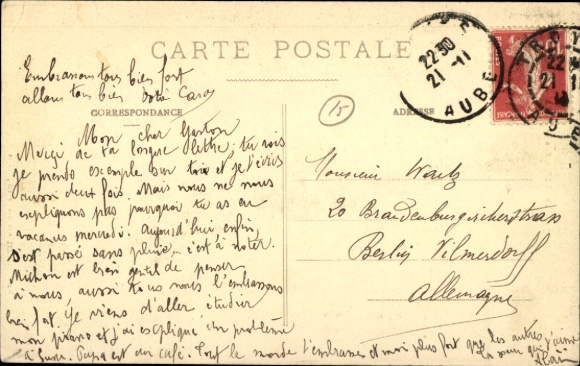 CARTE POSTALE
Embrassons tous bien fort
allons tous bien votre
CORRESPONDANCE
ADRESSE
15
22 30
21 - 11
AUBE
TROYES
22
21
Mon cher Gaston
Merci de ta longue lettre, tu vois
je prends exemple sur toi et je t'écris
aussi deux fois. Mais nous ne nous
expliquons pas pourquoi tu as eu
vacances mercredi. Aujourd'hui enfin
s'est passé sans pluie, c'est à noter.
Michon est bien gentil de penser
à nous, aussi nous l'embrassons
bien fort. Je viens d'aller étudier
mon piano et j'ai expliqué un problème
à Suzu. Papa est au café. Tout le monde t'embrasse et moi plus fort que les autres
La sœur qui t'aime
Monsieur Waltz
20 Brandenburgischerstrass
Berlin Vilmersdorff
Allemagne